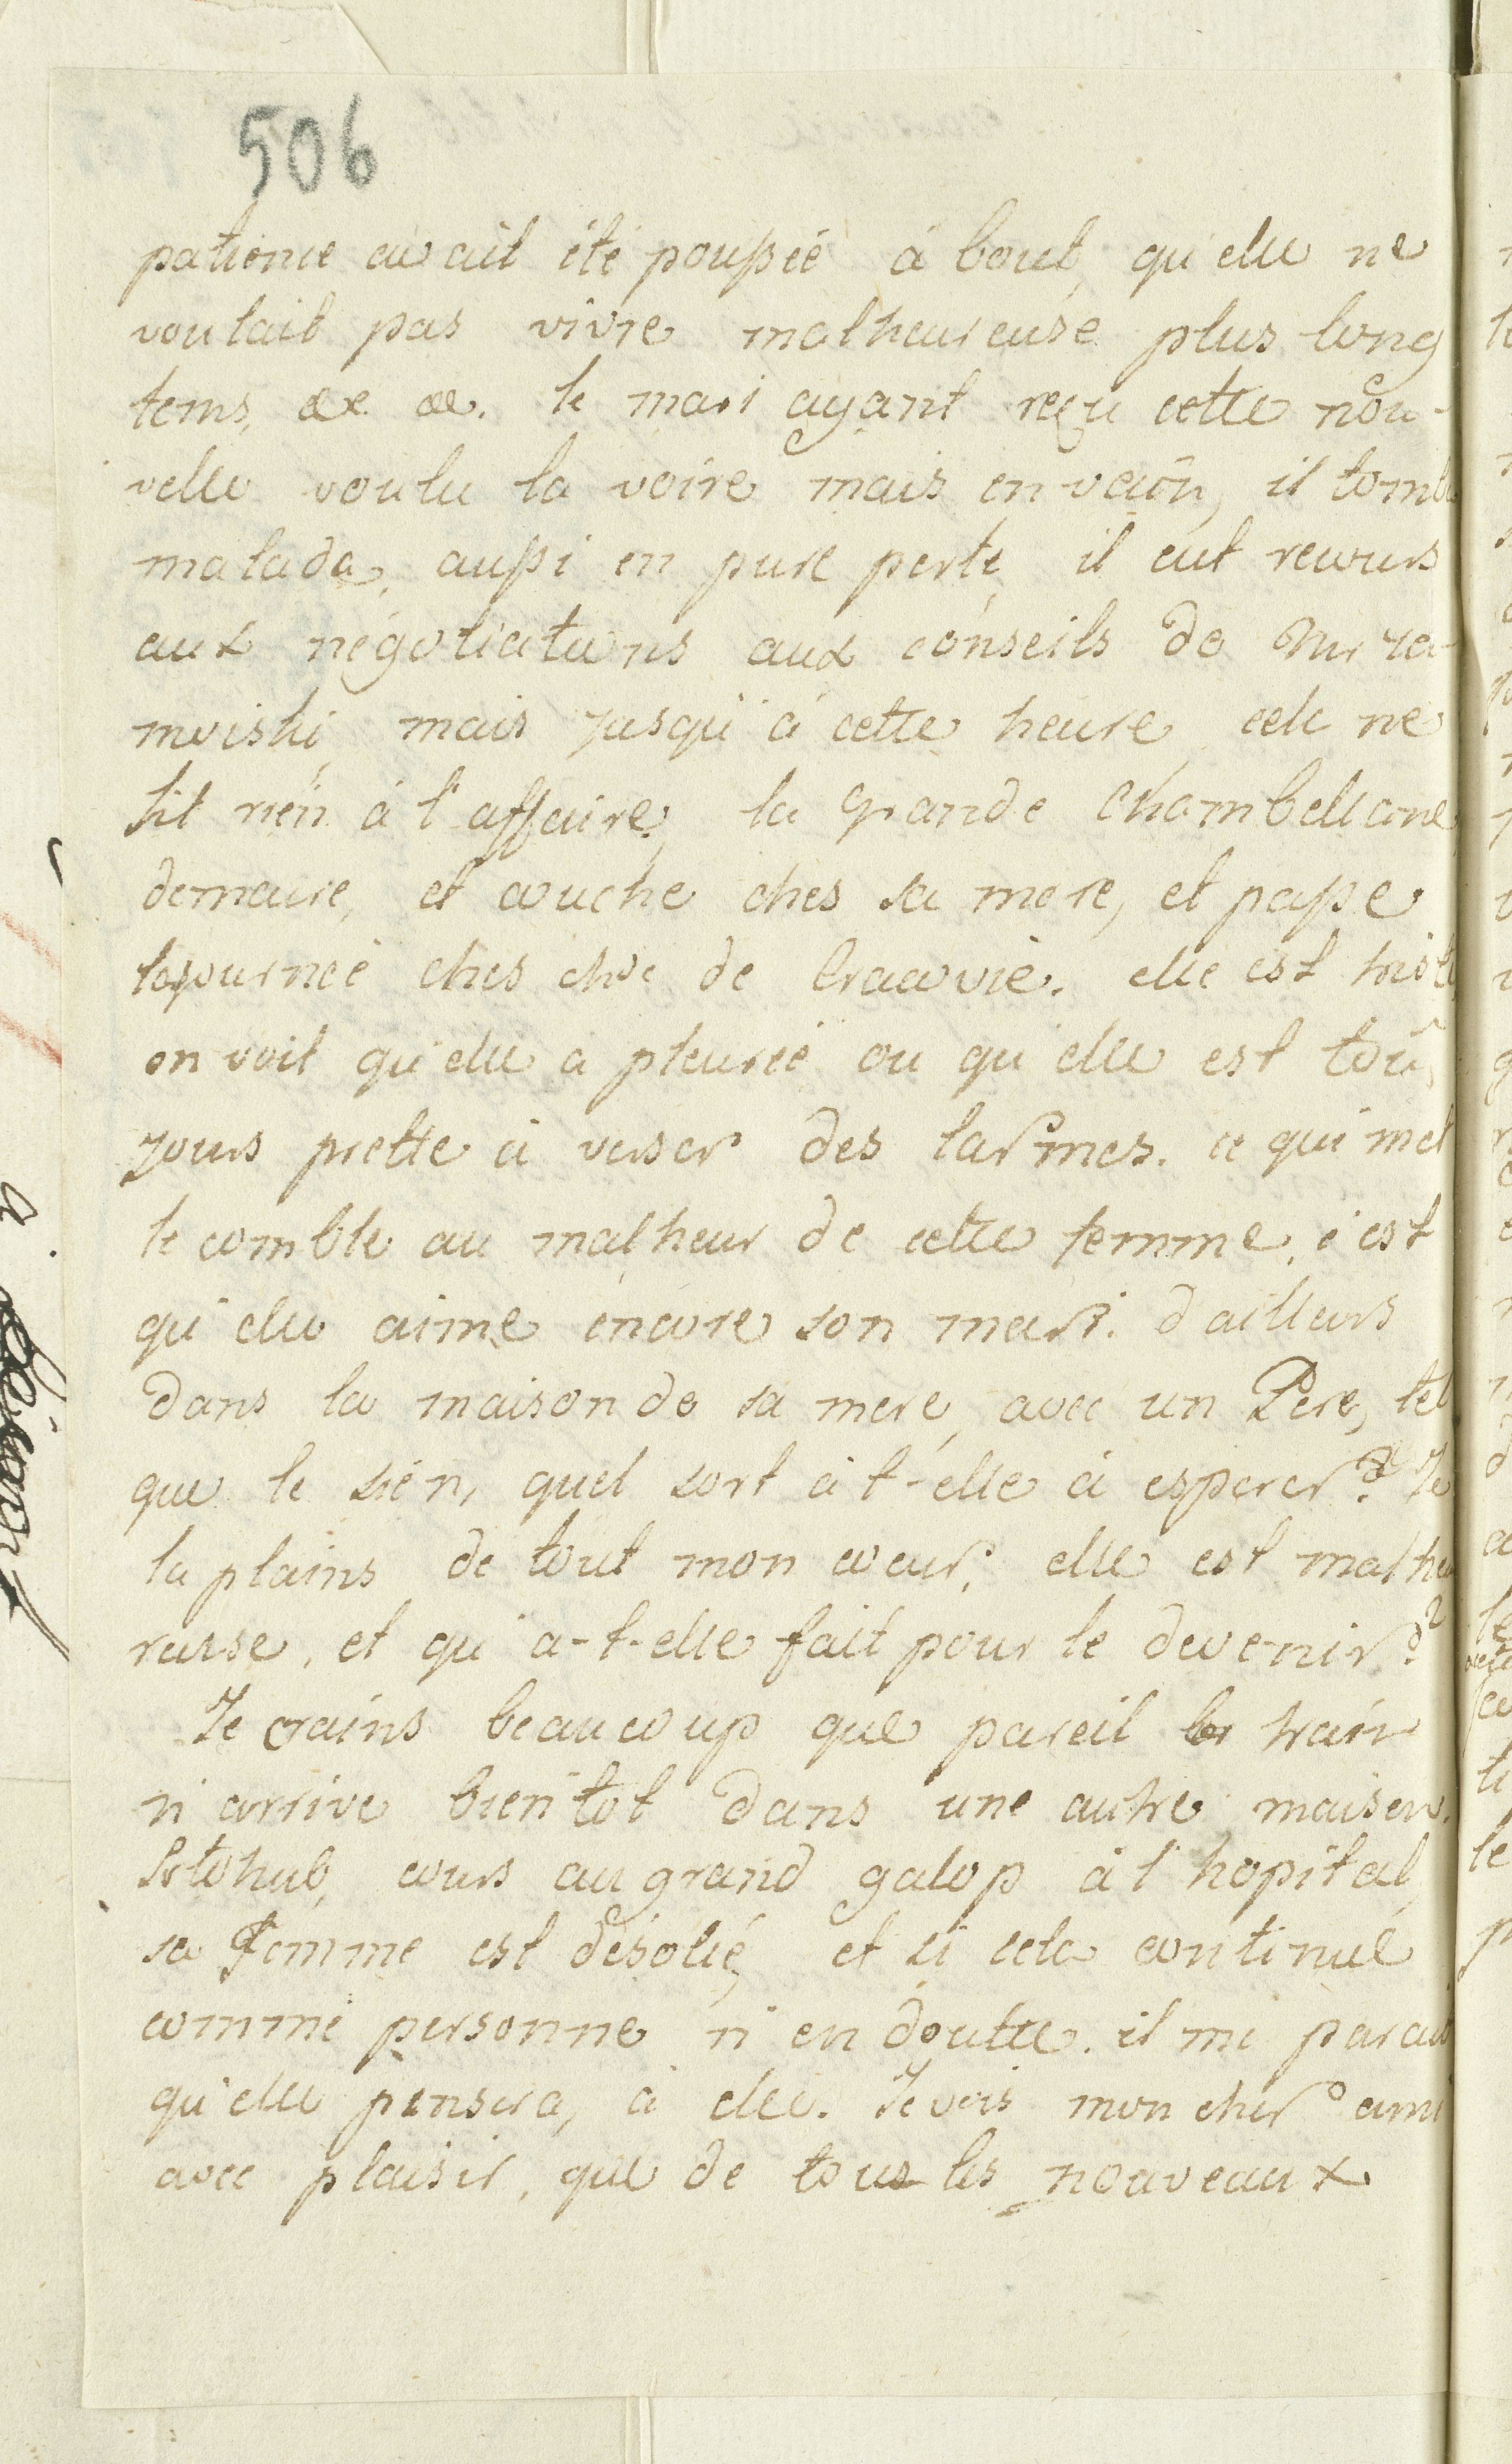 506
patience avait été poussée à bout, qu'elle ne
voulait pas vivre malheureuse plus long
tems, &c &c. le mari ayant reçu cette nou-
velle voulu la voire mais en vain, il tomb
malade, aussi en pure perte, il eut recours
aux négotiations aux conseils de Mr Za-
moiski, mais jusqu'à cette heure, cela ne
fit rien à l'affaire, la grande Chambellane
demeure, et couche ches sa mere, et passe
la journeé ches de Cracovie. elle est trist
on voit qu'elle a pleureé ou qu'elle est tou
jours prette à verser des larmes. ce qui met
le comble au malheur de cette femme, c'est
qu'elle aime encore son mari. d'ailleurs
dans la maison de sa mere, avec un Pere, tel
que le sien, quel sort à t-elle à esperer? Je
la plains de tout mon coeur, elle est malheu
reuse, et qu'a-t-elle fait pour le devenir?
Je crains beaucoup que pareil train
n'arrive bientot dans une autre maison.
cours au grand galop à l'hopital,
sa Femme est désolié, et si cela continué
comme personne n'en doutte. il me parait
qu'elle pensera, à elle. Je vois mon cher ami
avec plaisir, que de tous les nouveaux